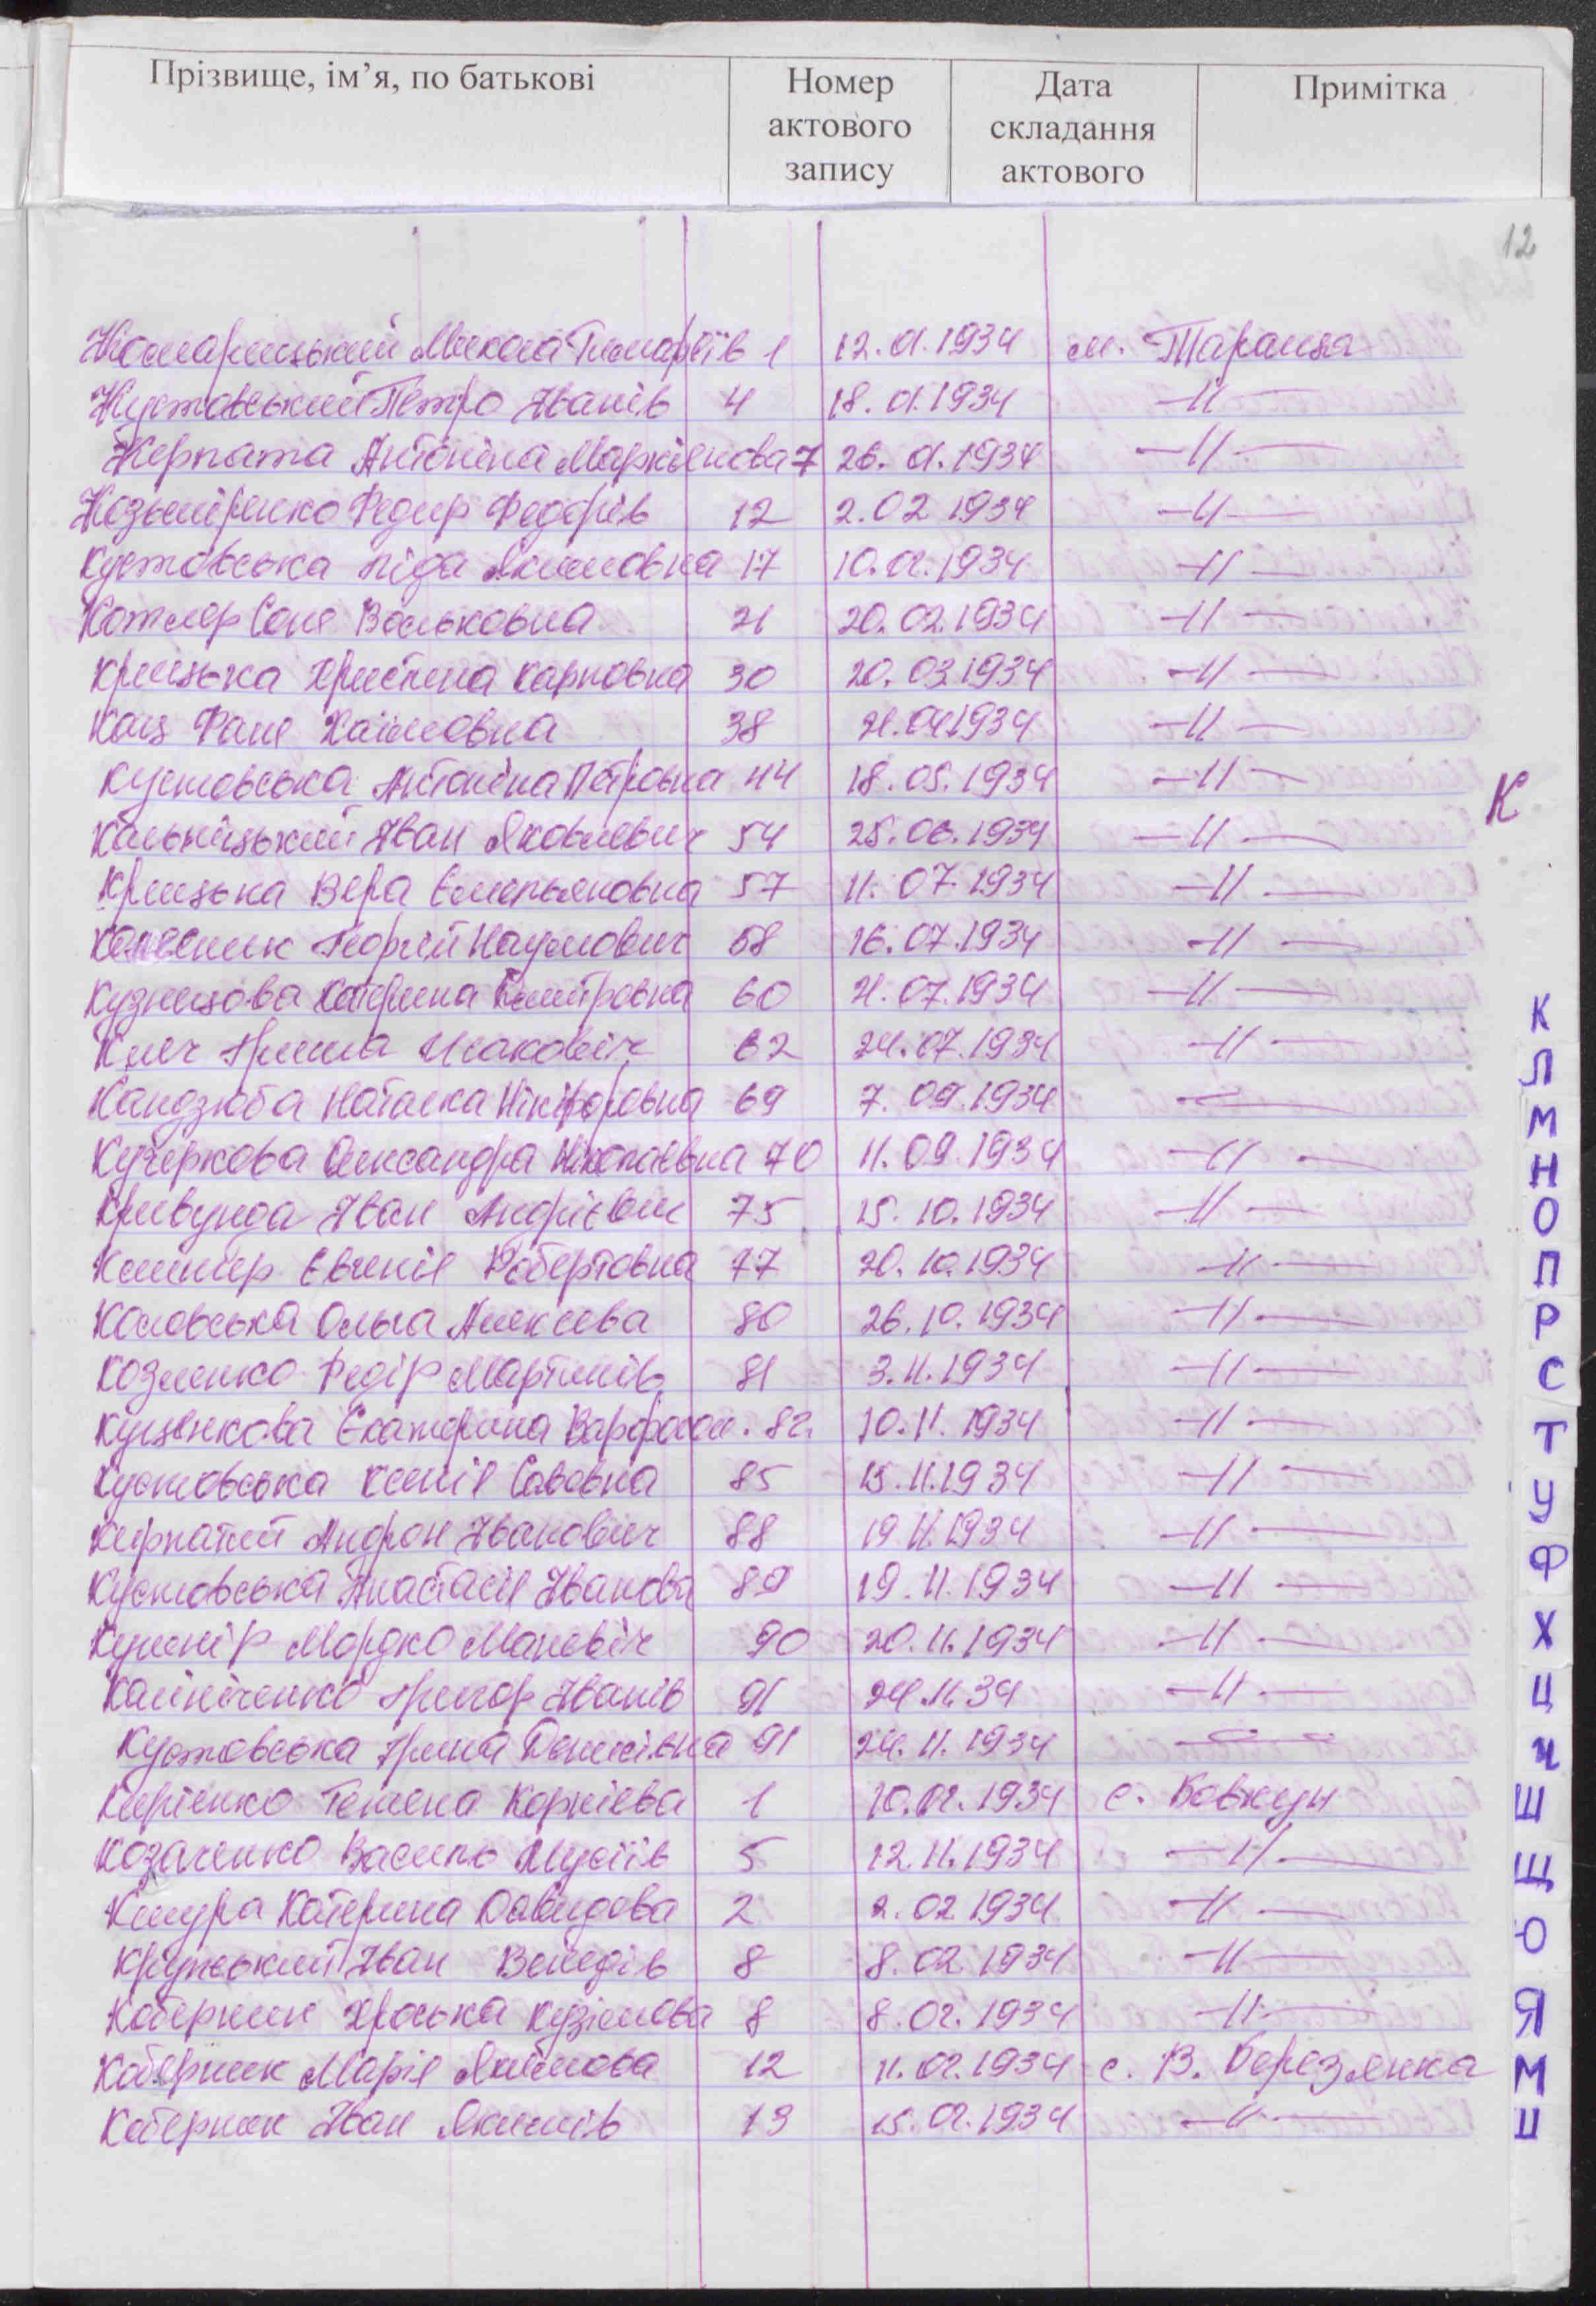 Прізвище, ім’я, по батькові Номер Дата Примітка
актового складання
запису актового
12
Комарицький Микола Тимофіїв 1 12.01.1934 м. Тараща
Кустовський Петро Іванів 4 18.01.1934 —//—
Керпата Антоніна Маркіянова 7 26.01.1934 —//—
Козьміренко Федир Федорів 12 2.02 1934 —//—
Кустовська Ліда Якимовна 17 10.02.1934 —//—
Котляр Соня Вольковна 21 20.02.1934 —//—
Крицька Христина Карповна 30 20.03.1934 —//—
Кац Фаня Хаїмовна 38 21.04.1934 —//—
Кустовська Антоніна Петровна 44 18.05.1934 —//—
К
Кальницький Іван Яковлевич 54 25.06.1934 —//—
Крицька Вера Емельяновна 57 11.07.1934 —//—
Колесник Георгій Наумович 58 16.07.1934 —//—
Кузнецова Катерина Дмитровна 60 21.07.1934 —//—
К
Гриша Исаковіч 62 24.07.1934 —//—
Л
Кандзюба Наталка Нікіфоровна 69 7.09.1934 —
М
Кучеркова Олександра Ніколаєвна 70 11.09.1934 —//—
Н
Кривунда Іван Андрієвич 75 15.10.1934 —//—
О
Євгенія Робертовна 77 20.10.1934 —//—
П
Косовська Ольга Алексієва 80 26.10.1934 —//—
Р
Козленко Федір Мартинів 81 3.11.1934 —//—
С
Куценкова Екатерина Варфолом. 82. 10.11.1934 —//—
Т
Кустовська Ксенія Савовна 85 15.11.1934 —//—
У
Кирпатий Андрон Іванович 88 19.11.1934 —//—
Ф
Кустовська Анастасія Іванова 89 19.11.1934 —//—
Кушнір Мордко Маневіч 90 20.11.1934 —//—
Х
Калініченко Григор Іванів 91 24.11.34 —//—
Ц
Кустовська Ірина Денисівна 91 24.11.1934 —
Ч
Кирієнко Тетяна Корнієва 1 10.02.1934 с. Ковжун
Ш
Козаченко Василь Мусіїв 5 12.11.1934 —//—
Щ
Кшура Катерина Давидова 2 2.02 1934 —//—
Ю
Іван Венедів 8 8.02 1934 —//—
Коберник Хроська Кузімова 8 8.02.1934 —//—
Я
Коберник Марія Якимова 12 11.02.1934 с. В. Березянка
М
Коберник Іван Якимів 13 15.02.1934 —//—
Ц